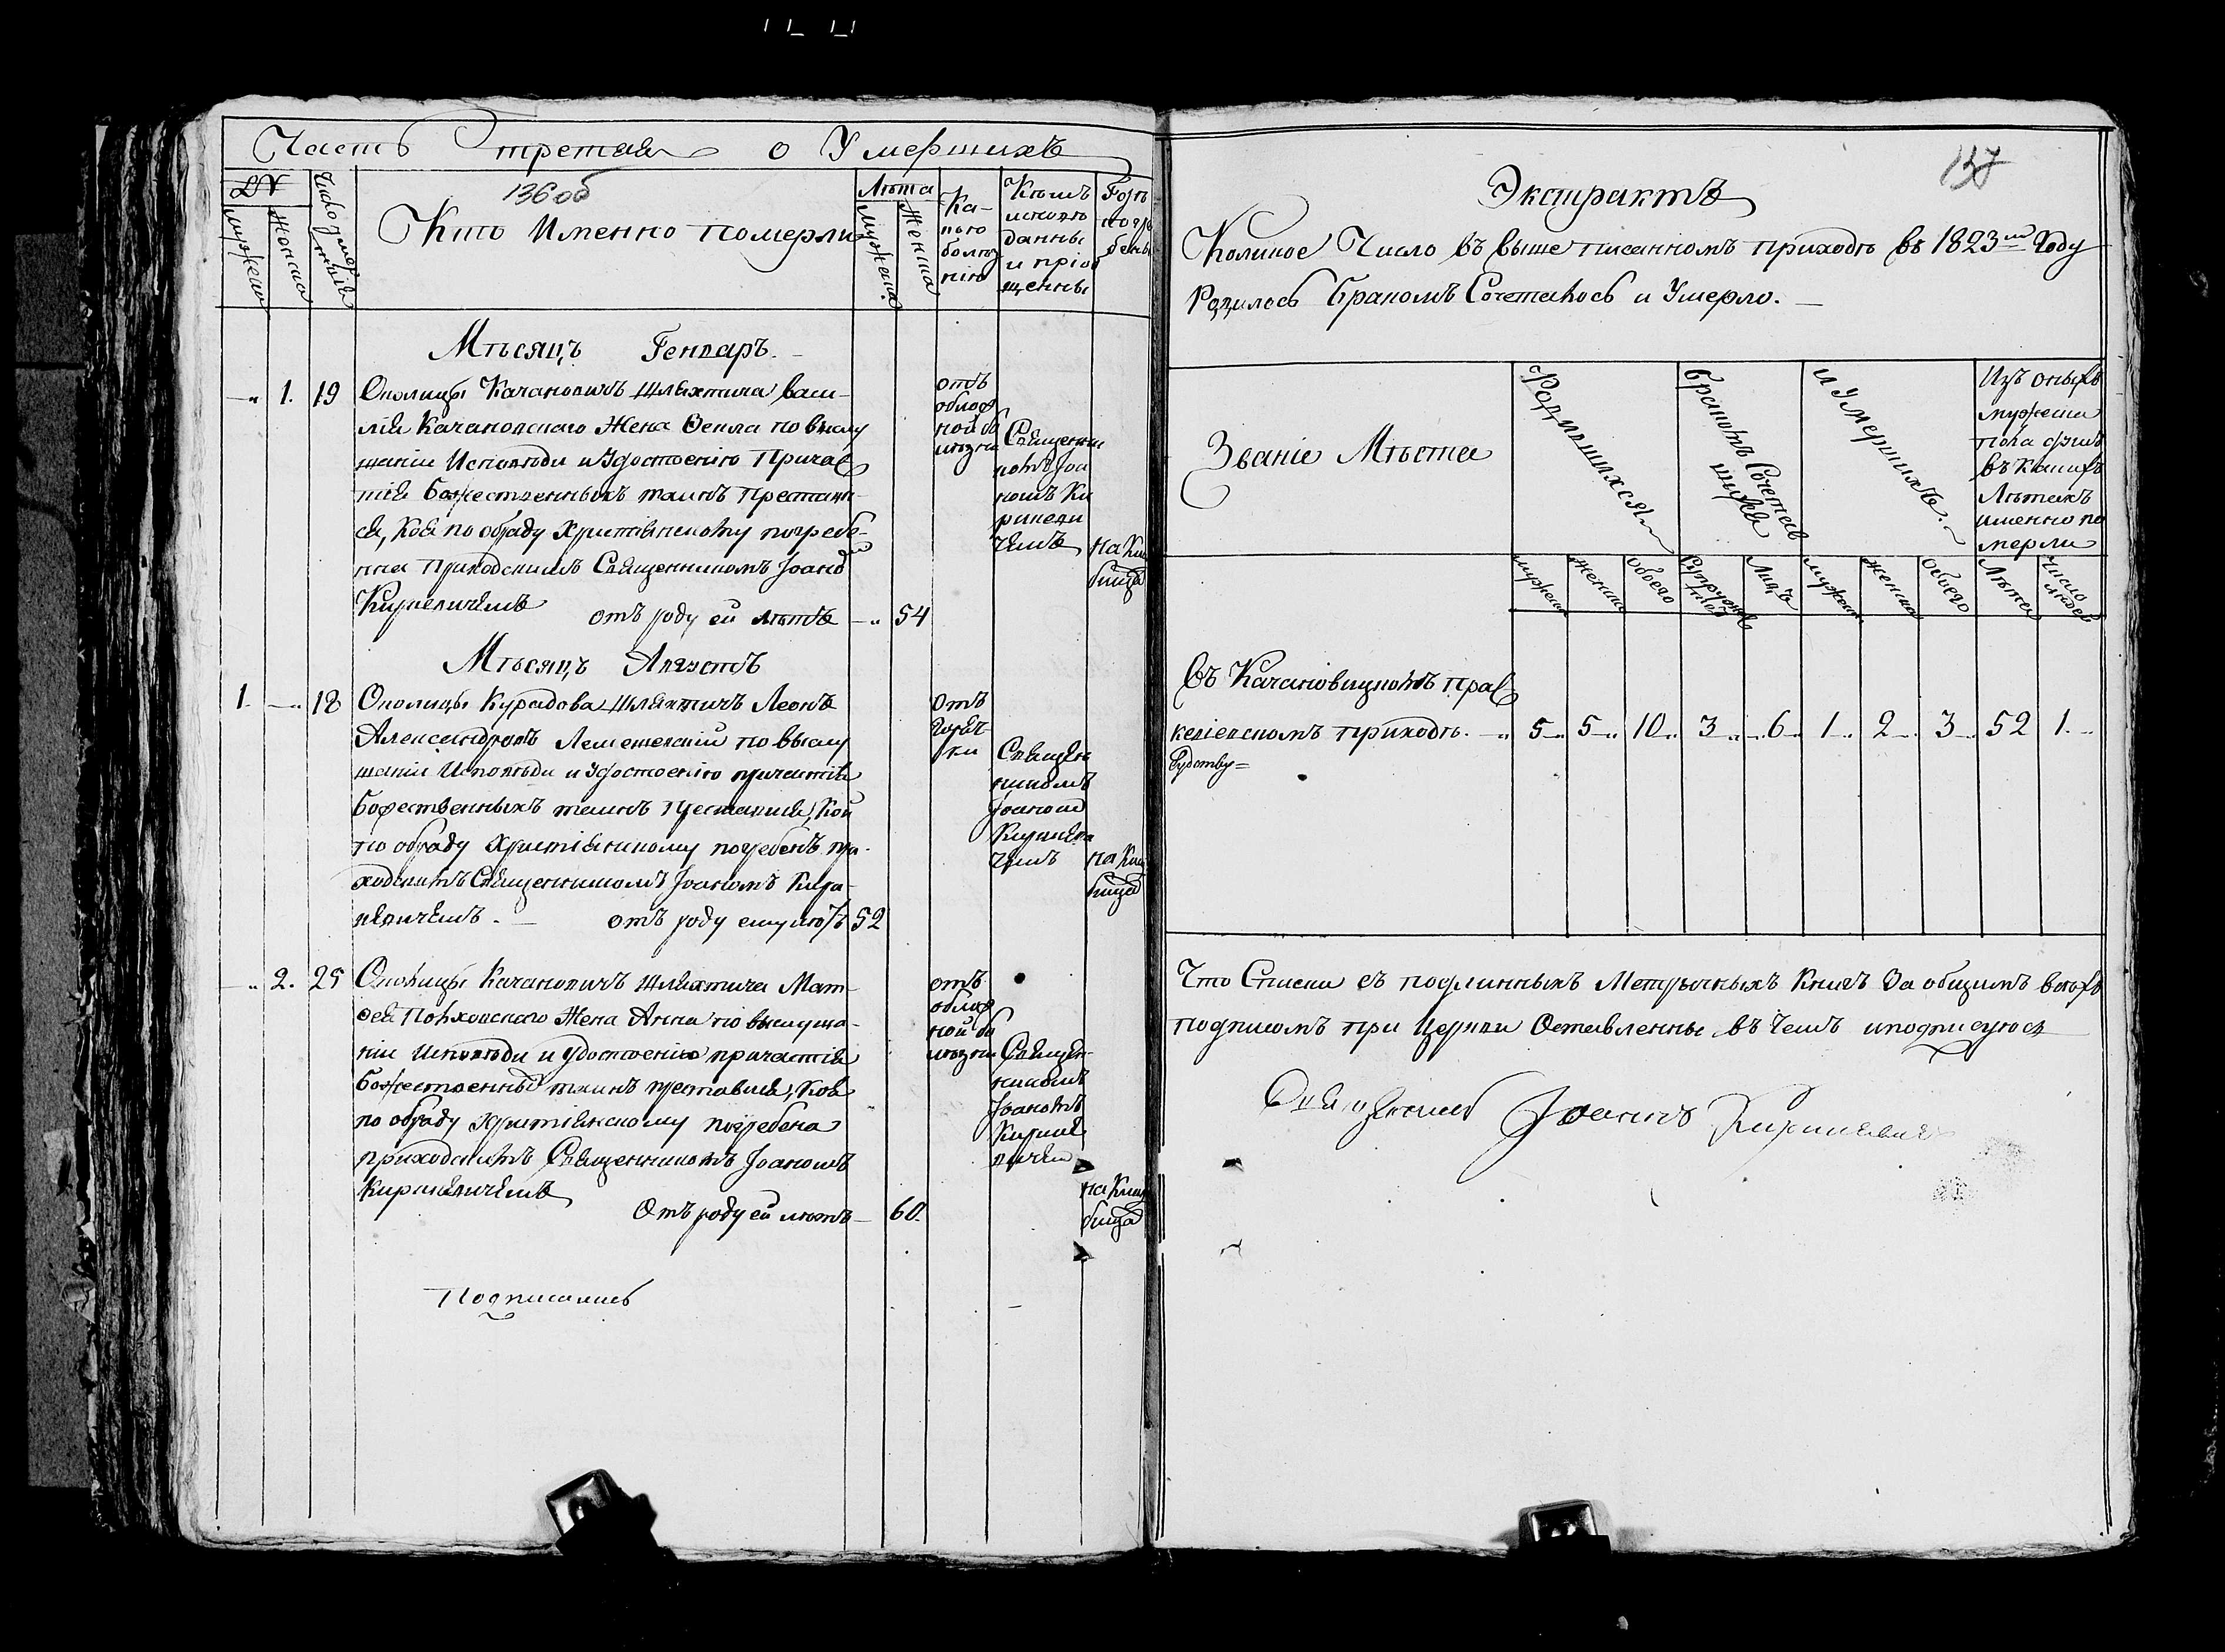 Часть третая о Умершихъ
136 об
№
мужеска
женска
Число умер
Кто Именно померли
Лѣта
мужеска
женска
Ка-
кою
болѣз
нію
Кѣмъ
исповѣ
даны
и пріоб
щенны
Гдѣ
погре
бены
Мѣсяцъ Генваръ.
1. 19 Околицы Качановичъ Шляхтича Васи-
лія Качановскаго Жена Ѳекла по выслу
шаніи Исповѣди и Удостоенію Причас
тія Божественныхъ таинъ Престави-
ся, Коя по обряду Христіянскому погребе-
нна Приходскимъ Священникомъ Іоано
Киркевичемъ отъ роду ей лѣтъ 54
отъ
облож
ной бо
лѣзни
Священни
комъ Іоа
номъ Ки
ркеви
чемъ
на Кла
бища
Мѣсяцъ Августъ
1. 18 Околицы Курадова Шляхтичъ Леонъ
Александровъ Лемешевскій по выслу
шаніи Исповѣди и Удостоенію причастія
Божественныхъ таинъ Преставися, Кой
по обряду Христіянскому погребенъ при-
ходскимъ Священникомъ Іоаномъ Кирк-
евичемъ. отъ роду ему лѣтъ 52
отъ
горяч-
ки
Священ
никомъ
Іоаном
Киркеви
чемъ
на Кла
бища
2. 25 Околицы Качановичъ Шляхтича Мат-
ѳея Полховскаго Жена Анна по выслуша-
ніи Исповѣди и удостоенію причастія
Божественны таинъ преставися, Коя
по обряду Христіянскому погребена
приходскимъ Священникомъ Іоаномъ
Киркевичемъ
Отъ роду ей лѣтъ 60.
отъ
облож
ной бо
лѣзни
Священ-
никомъ
Іоаномъ
Кирке
вичем
на Кла
бища
Подписались
137
Экстрактъ
Коликое Число въ выше писанномъ приходѣ въ 1823м Году
Родилось бракомъ Сочеталось и Умерло.
Званіе Мѣста
Родившихся
бракомъ Сочетав
шихся
и Умершихъ.
Изъ оныхъ
мужеска
пола сумъ
въ какихъ
Лѣтахъ
именно по
мерли
мужеска
женска
обоего
Супружес
твъ
Лицъ
мужеск
женска
обоего
Лѣта
Число
людей
Въ Качановицкомъ Прас
кевіевскомъ приходѣ. 5 5 10 3 6 1 2 3 52 1.
Что Списки съ подлинныхъ Метрычныхъ Книгъ За общимъ всѣхъ
подписомъ при Церкви Оставленны въ Чемъ и подписуюся
Священникъ Іоаннъ Киркевичъ